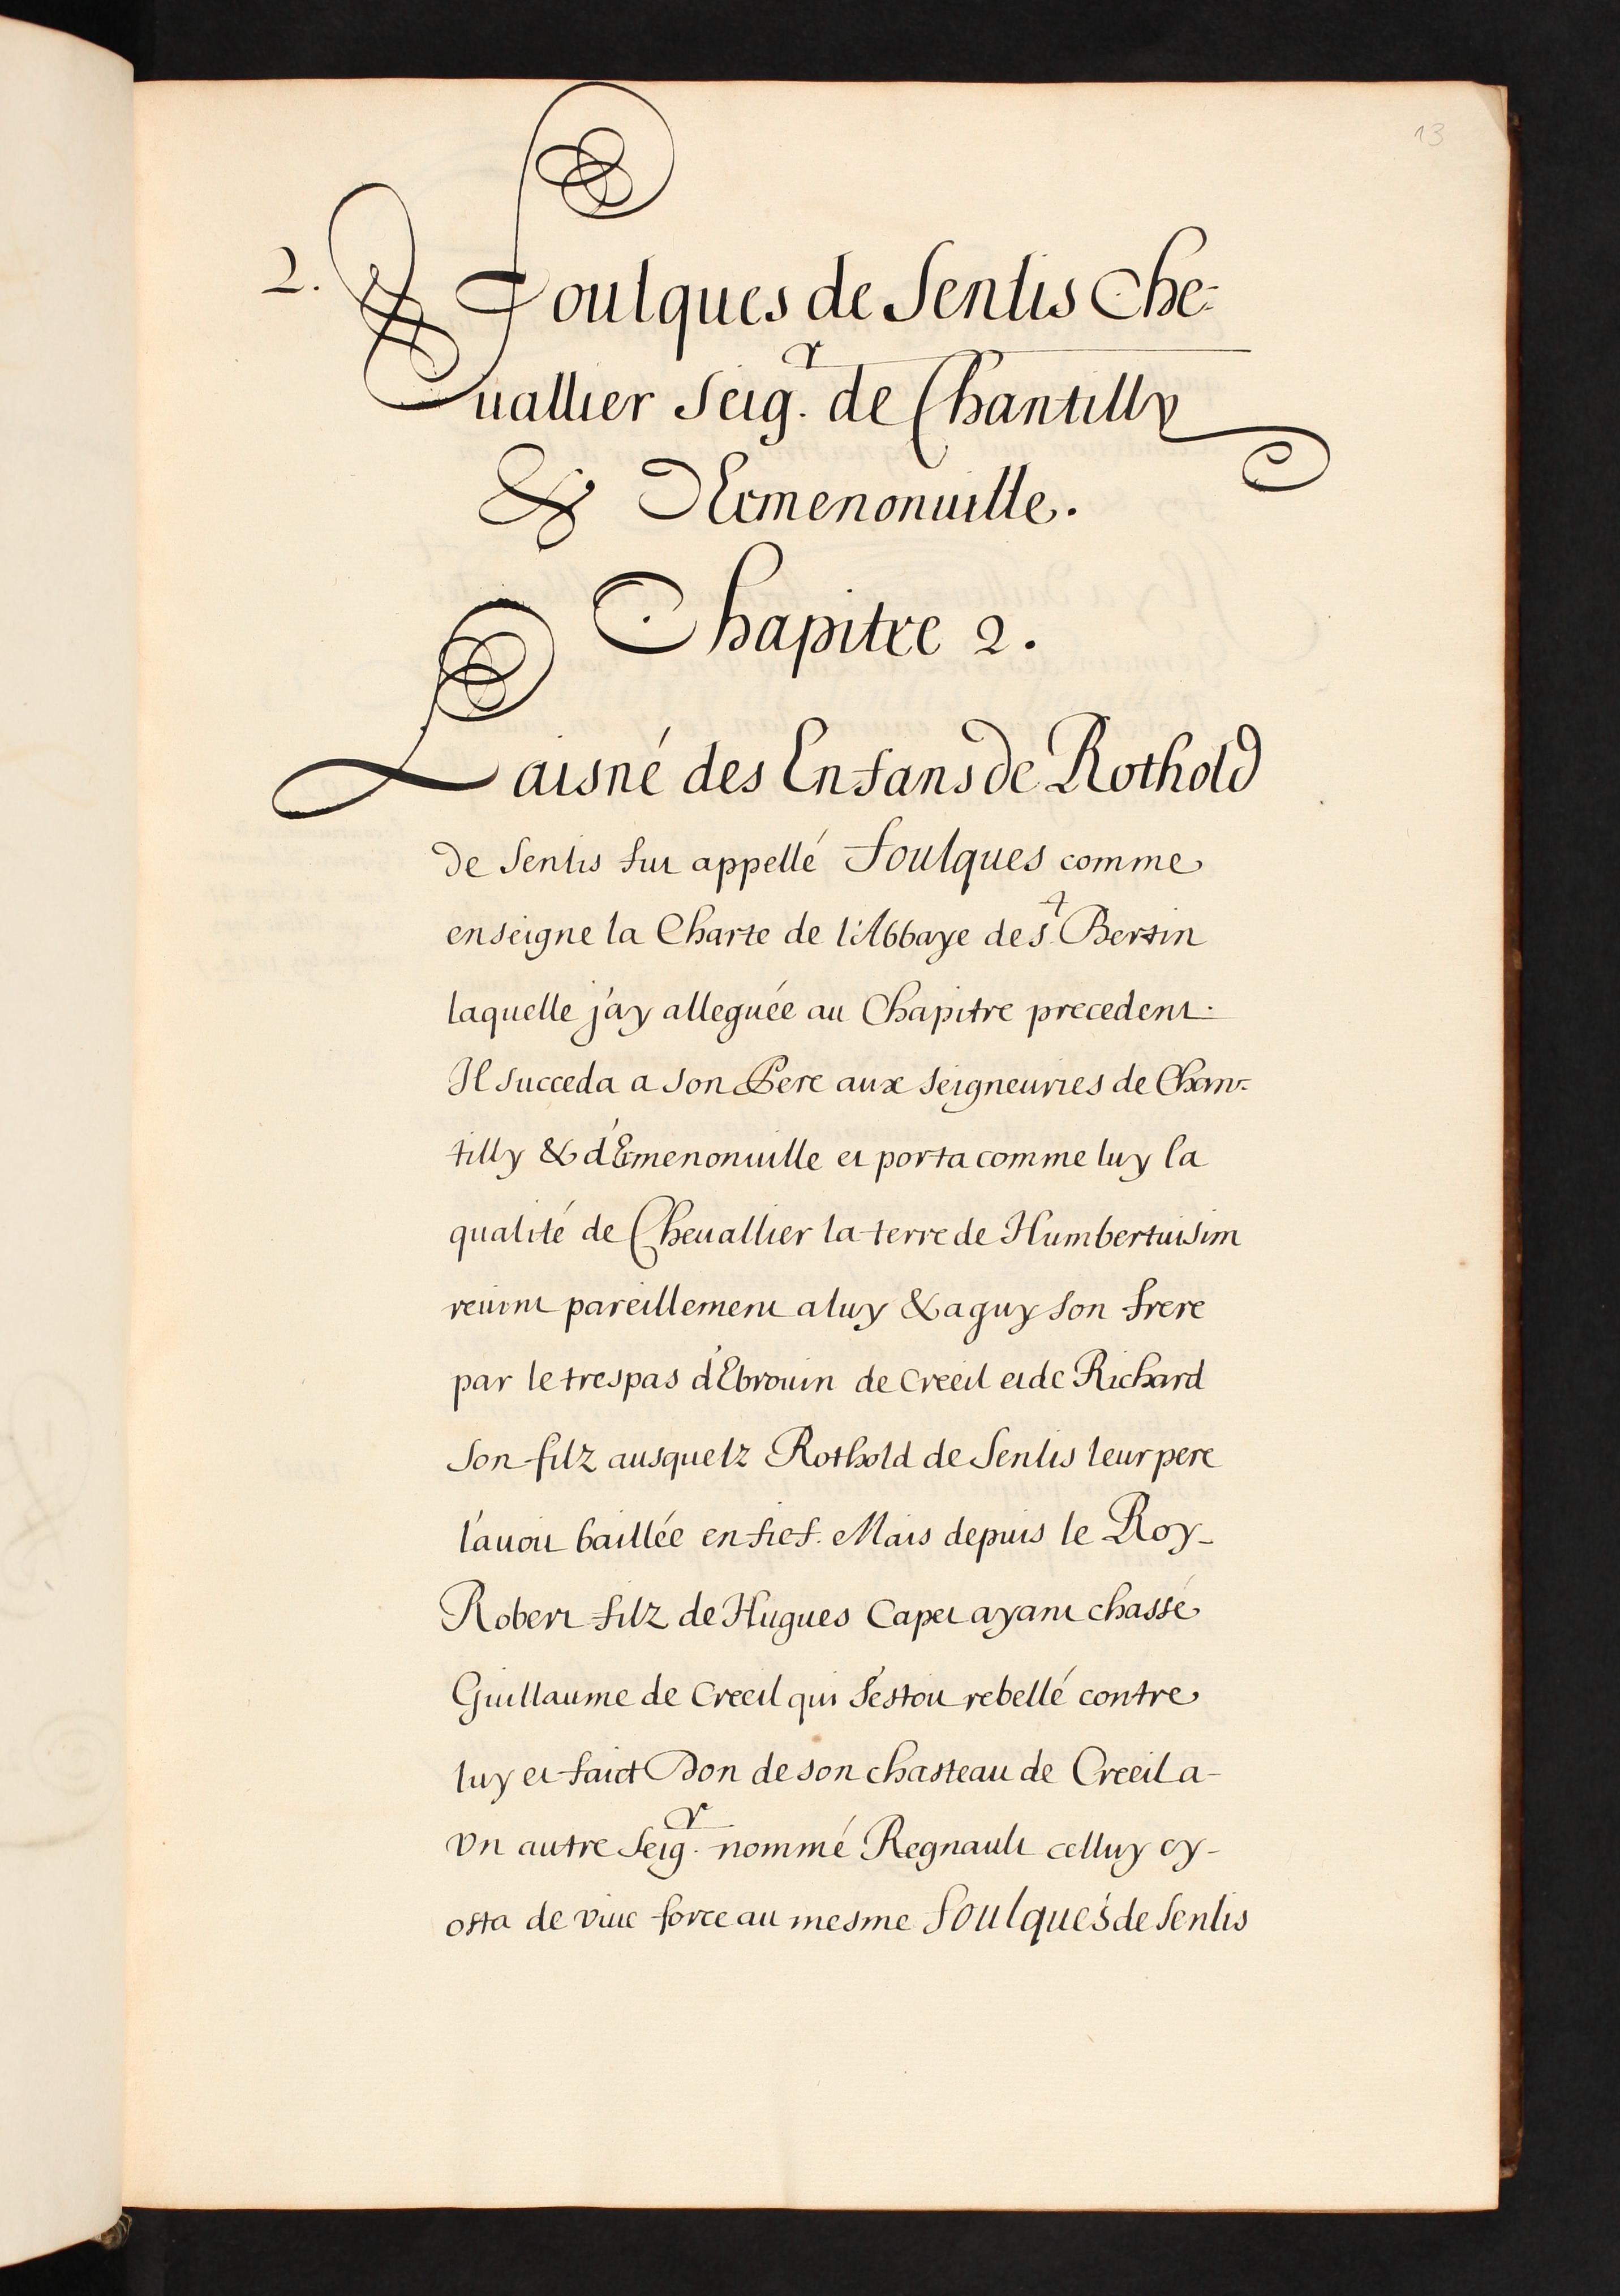 13
2. Foulques de Senlis Che-
uallier Seigr. de Chantilly
& DErmenonuille.
Chapitre 2.
Laisné des Enfans de Rothold
de Senlis fut appellé Foulques comme
enseigne la Charte de l'Abbaye de St. Bertin
laquelle j'ay alleguée au Chapitre precedent.
Il succeda a son Pere aux seigneuries de Chan-
tilly & d'Ermenonuille et porta comme luy la
qualité de Cheuallier la terre de Humbertuisim
reuint pareillement a luy & a guy son frere
par le trespas d'Ebrouin de Creeil et de Richard
son filz ausquelz Rothold de Senlis leur pere
l'auoit baillée en fief. Mais depuis le Roy
Robert filz de Hugues Capet ayant chassé
Guillaume de Creeil qui s'estoit rebellé contre
luy et faict Don de son chasteau de Creeil a
vn autre Seigr. nommé Regnault celluy cy
osta de viue force au mesme Foulques de Senlis